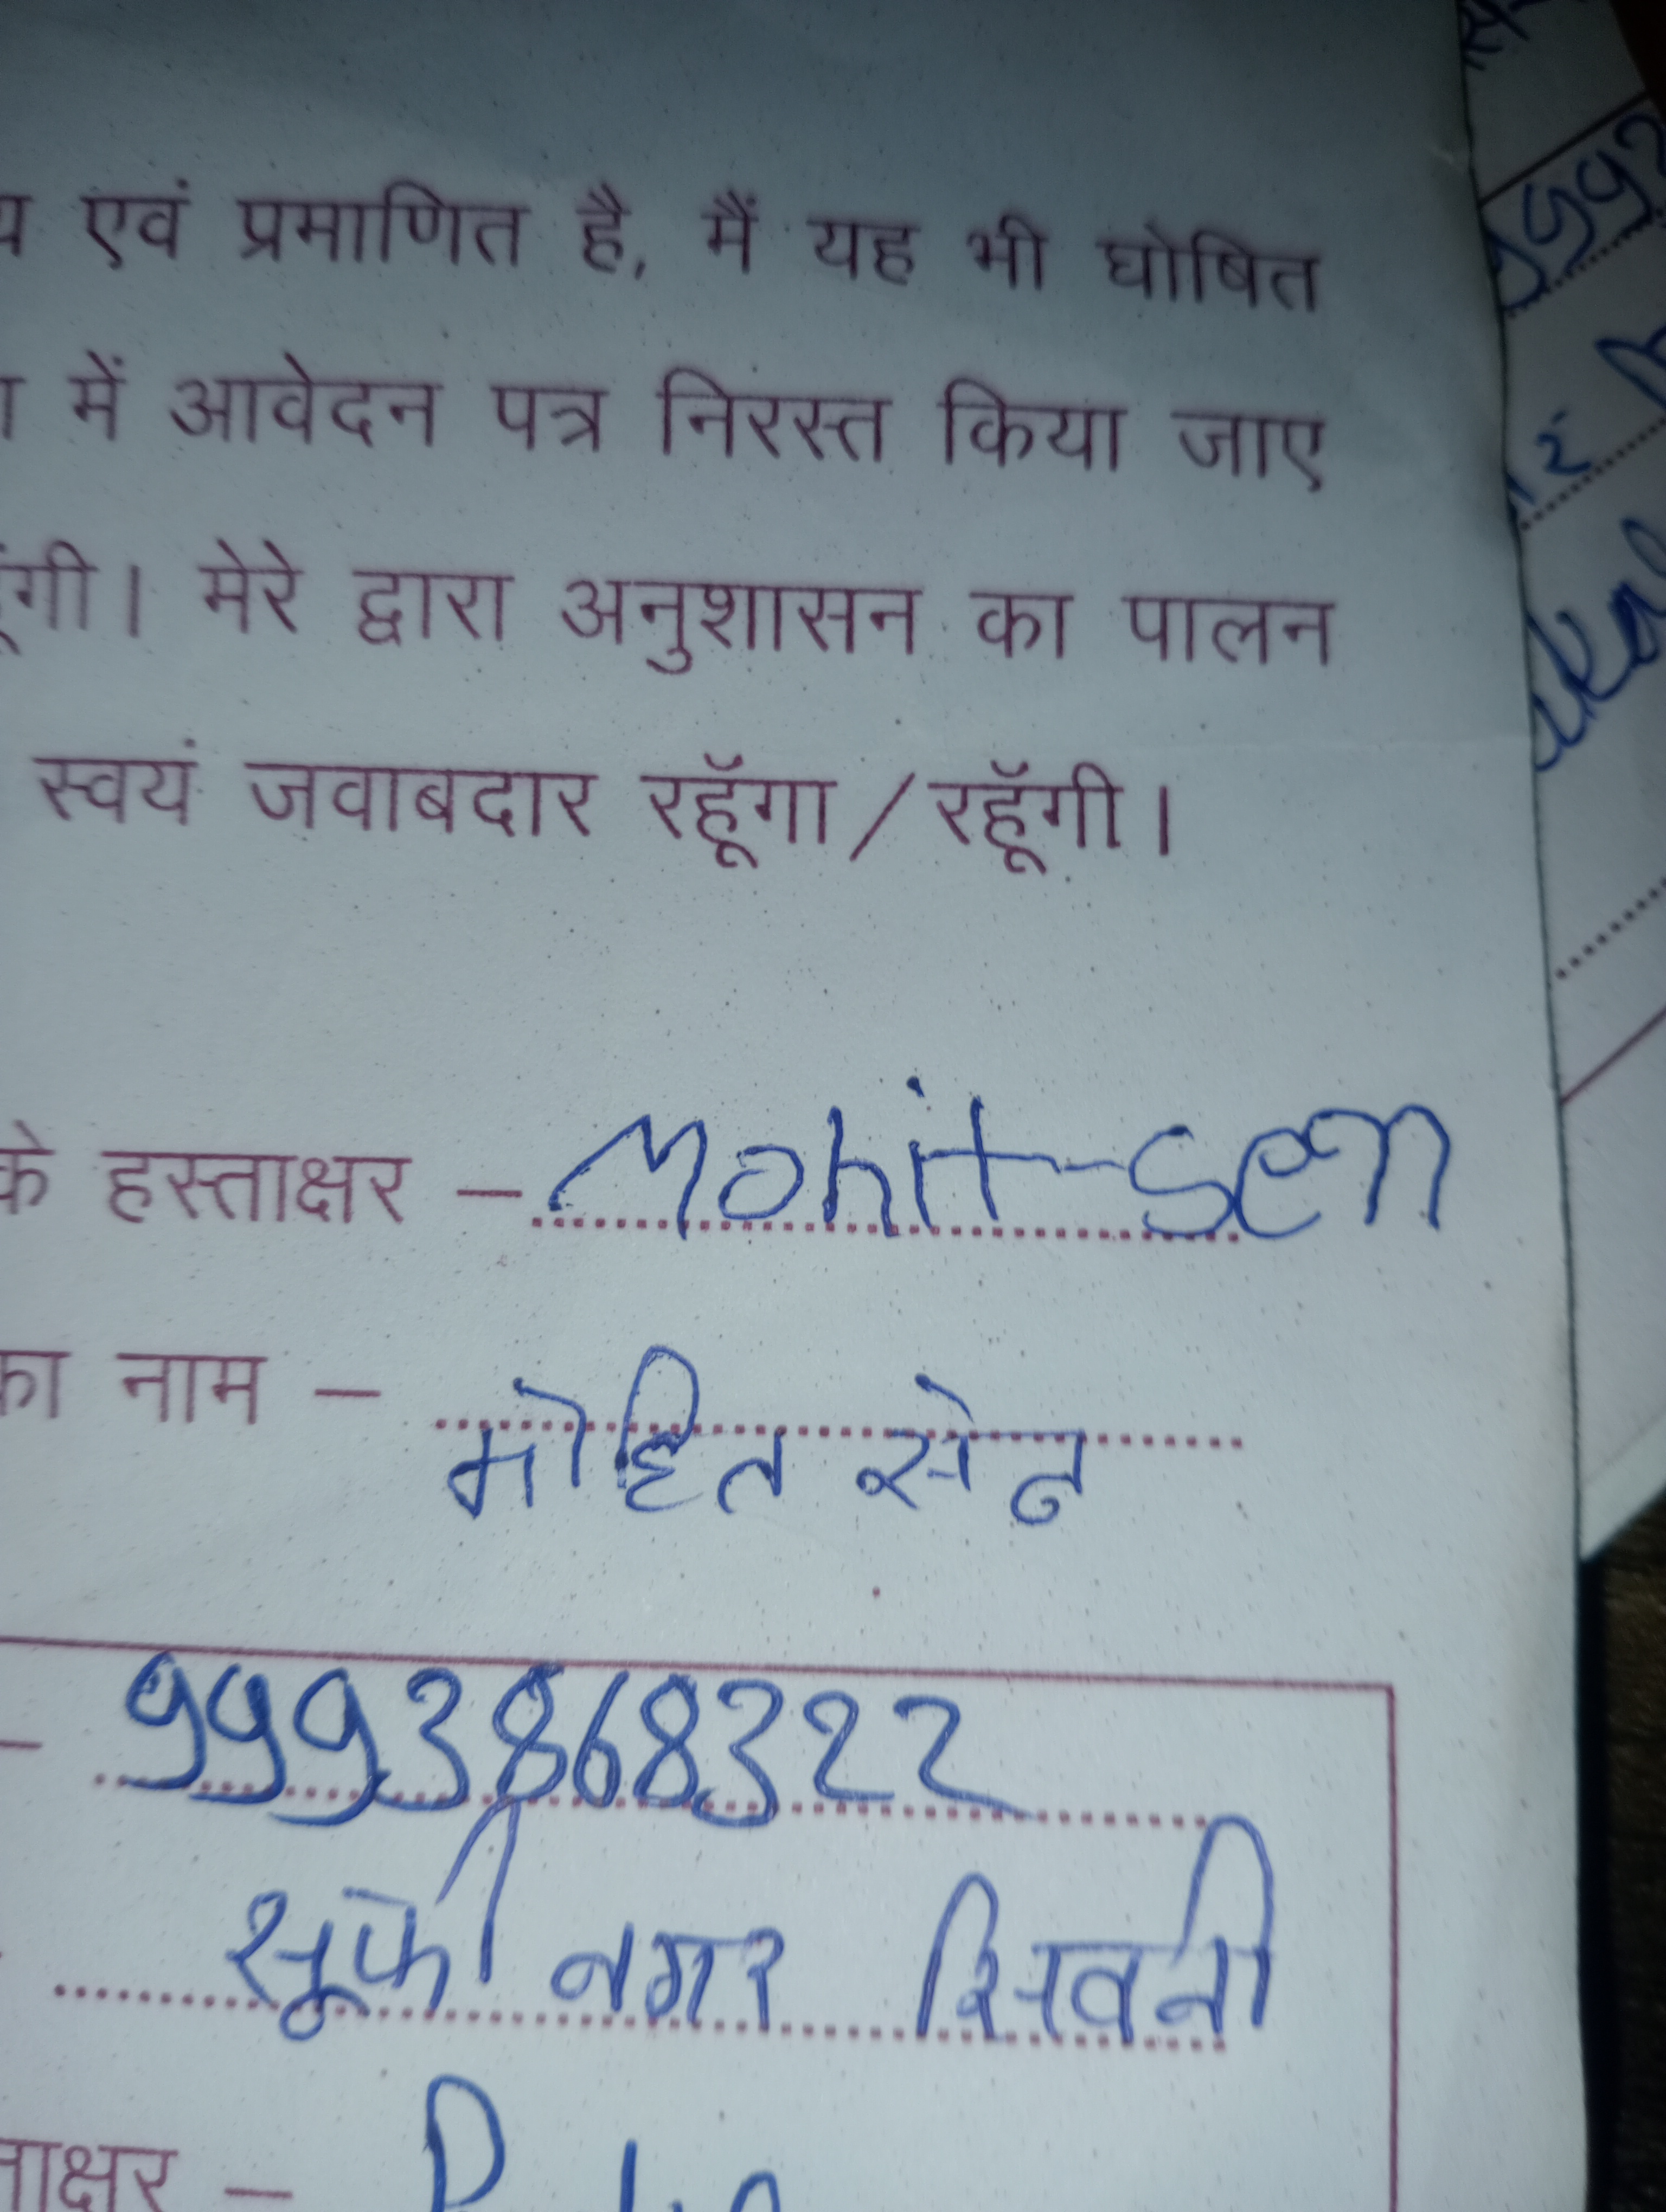 एवं प्रमाणित है, मैं यह भी घोषित
में आवेदन पत्र निरस्त किया जाए
मेरे द्वारा अनुशासन का पालन
स्वयं जवाबदार रहूँगा / रहूँगी।
के हस्ताक्षर – Mohit-Sen
का नाम – मोहित सेन
– 9993868322
सूफी नगर सिवनी